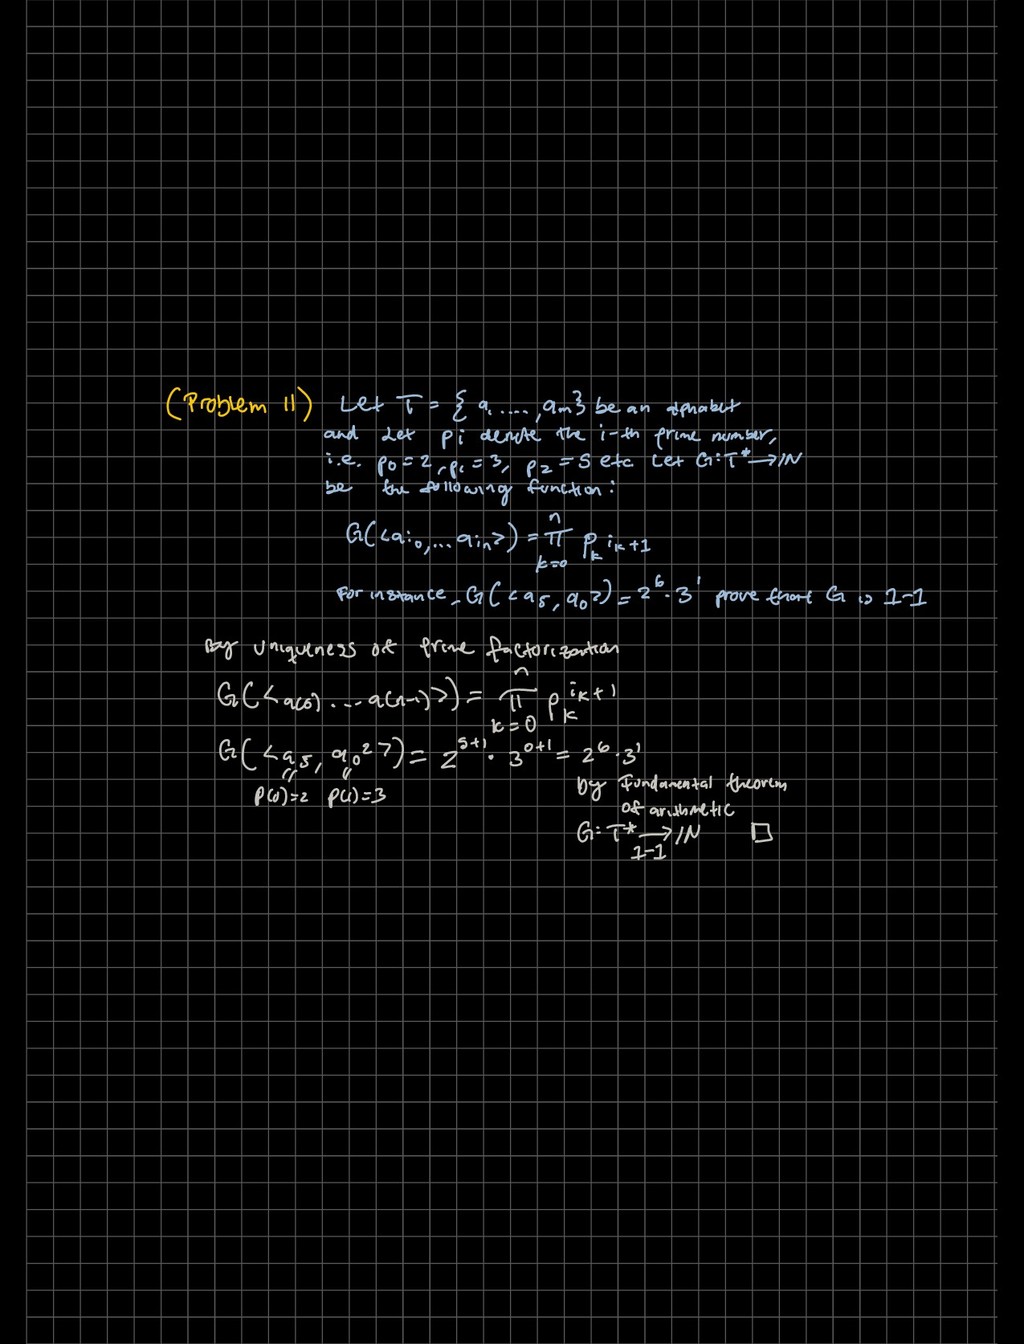 (Problem 11) Let T = { a, ...., am} be an alphabet
and Let pi denote the i-th prime number,
i.e. p₀=2, p₁=3, p₂=5 etc Let G:T*→ℕ
be the following function:
G(<a_{i₀},...a_{iₙ}>) = ∏_{k=0}^{n} p_k^{i_k+1}
For instance, G(<a₅, a₀>) = 2⁶·3¹ prove that G is 1-1
By uniqueness of prime factorization
G(<a(0) ... a(n-1)>) = ∏_{k=0}^{n} p_k^{i_k+1}
G(<a₅, a₀²>) = 2^{5+1}·3^{0+1} = 2⁶·3¹
p(0)=2 p(1)=3
by Fundamental theorem
of arithmetic
G: T* → ℕ □
1-1